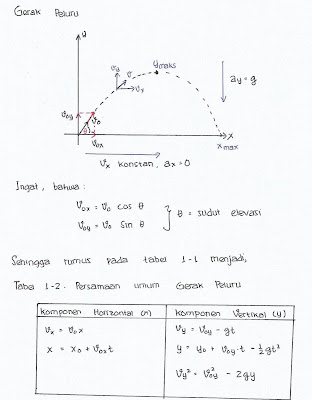 Gerak Peluru
y
ymaks
v
vy
vx
ay = g
voy
vo
θ
vox
x
xmax
vx konstan, ax = 0
Ingat, bahwa :
vox = vo cos θ
voy = vo sin θ
θ = sudut elevasi
Sehingga rumus pada tabel 1-1 menjadi,
Tabel 1-2. Persamaan umum Gerak Peluru
Komponen Horizontal (x)
Komponen Vertikal (y)
vx = vox
vy = voy - gt
x = xo + voxt
y = yo + voy.t - ½gt²
vy² = voy² - 2gy